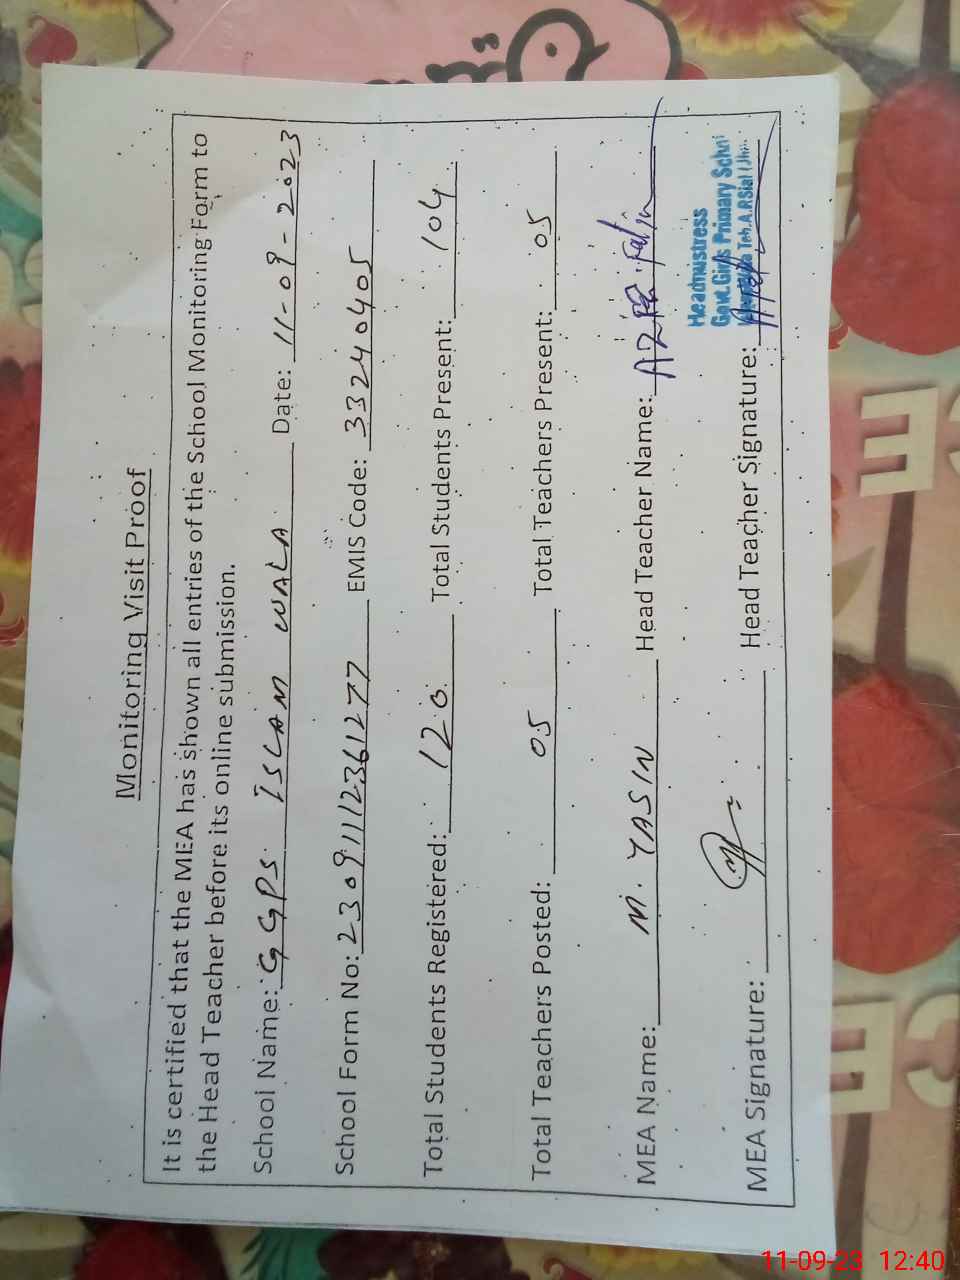 Monitoring Visit Proof
It is certified that the MEA has shown all entries of the School Monitoring Form to
the Head Teacher before its online submission.
School Name: GGPS ISLAM WALA Date: 11-09-2023
School Form No: 23091112361277 EMIS Code: 33240405
Total Students Registered: 120 Total Students Present: 104
Total Teachers Posted: 05 Total Teachers Present: 05
MEA Name: M. YASIN Head Teacher Name:
Headmistress
Govt. Girls Primary
Teh. A.P.Sial
MEA Signature: Head Teacher Signature:
11-09-23 12:40